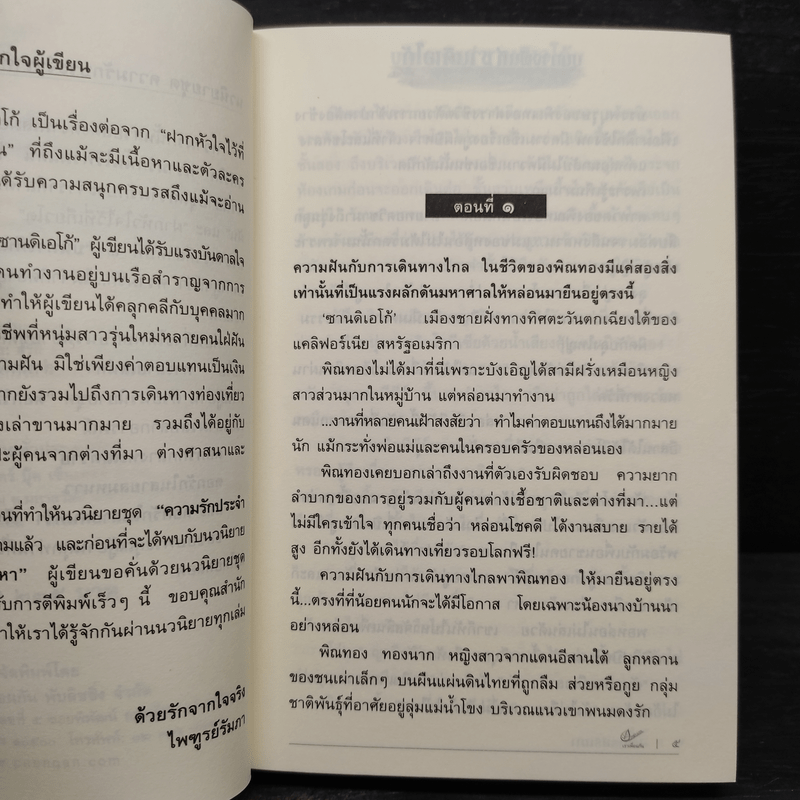 กใจผู้เขียน
อโก้ เป็นเรื่องต่อจาก “ฝากหัวใจไว้ที่
น” ที่ถึงแม้จะมีเนื้อหาและตัวละคร
ได้รับความสนุกครบรสถึงแม้จะอ่าน
ซานดิเอโก้” ผู้เขียนได้รับแรงบันดาลใจ
คนทำงานอยู่บนเรือสำราญจากการ
ทำให้ผู้เขียนได้คลุกคลีกับบุคคลมาก
ชีพที่หนุ่มสาวรุ่นใหม่หลายคนใฝ่ฝัน
ามฝัน มิใช่เพียงค่าตอบแทนเป็นเงิน
ากยังรวมไปถึงการเดินทางท่องเที่ยว
งเล่าขานมากมาย รวมถึงได้อยู่กับ
ปะผู้คนจากต่างที่มา ต่างศาสนาและ
อนที่ทำให้นวนิยายชุด “ความรักประจำ
ามแล้ว และก่อนที่จะได้พบกับนวนิยาย
หา” ผู้เขียนขอคั่นด้วยนวนิยายชุด
รับการตีพิมพ์เร็วๆ นี้ ขอบคุณสำนัก
ทำให้เราได้รู้จักกันผ่านนวนิยายทุกเล่ม
ด้วยรักจากใจจริง
ไพฑูรย์รัมภา
ตอนที่ ๑
ความฝันกับการเดินทางไกล ในชีวิตของพิณทองมีแค่สองสิ่ง
เท่านั้นที่เป็นแรงผลักดันมหาศาลให้หล่อนมายืนอยู่ตรงนี้
‘ซานดิเอโก้’ เมืองชายฝั่งทางทิศตะวันตกเฉียงใต้ของ
แคลิฟอร์เนีย สหรัฐอเมริกา
พิณทองไม่ได้มาที่นี่เพราะบังเอิญได้สามีฝรั่งเหมือนหญิง
สาวส่วนมากในหมู่บ้าน แต่หล่อนมาทำงาน
...งานที่หลายคนเฝ้าสงสัยว่า ทำไมค่าตอบแทนถึงได้มากมาย
นัก แม้กระทั่งพ่อแม่และคนในครอบครัวของหล่อนเอง
พิณทองเคยบอกเล่าถึงงานที่ตัวเองรับผิดชอบ ความยาก
ลำบากของการอยู่รวมกับผู้คนต่างเชื้อชาติและต่างที่มา...แต่
ไม่มีใครเข้าใจ ทุกคนเชื่อว่า หล่อนโชคดี ได้งานสบาย รายได้
สูง อีกทั้งยังได้เดินทางเที่ยวรอบโลกฟรี!
ความฝันกับการเดินทางไกลพาพิณทอง ให้มายืนอยู่ตรง
นี้...ตรงที่ที่น้อยคนนักจะได้มีโอกาส โดยเฉพาะน้องนางบ้านนา
อย่างหล่อน
พิณทอง ทองนาก หญิงสาวจากแดนอีสานใต้ ลูกหลาน
ของชนเผ่าเล็กๆ บนผืนแผ่นดินไทยที่ถูกลืม ส่วยหรือกูย กลุ่ม
ชาติพันธุ์ที่อาศัยอยู่ลุ่มแม่น้ำโขง บริเวณแนวเขาพนมดงรัก
| ๕